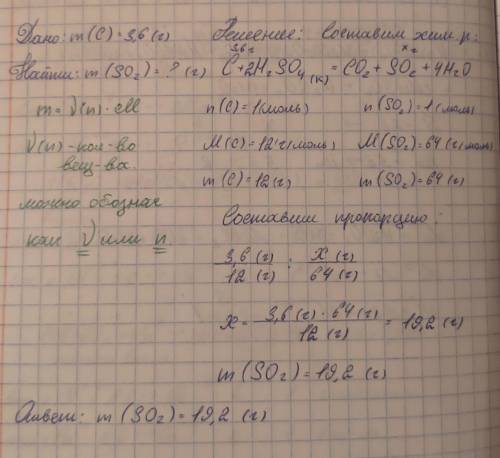 Дано: m(C)=3,6(г)
Найти: m(SO₂)=?(г)
m=V(n)·M
V(n)-кол-во
вещ-ва.
можно обознач
как V или n.
Решение: Составим хим. р:
3,6г x г
C+2H₂SO₄(к)=CO₂+SO₂+4H₂O
n(C)=1(моль) n(SO₂)=1(моль)
M(C)=12(г/моль) M(SO₂)=64(г/моль)
m(C)=12(г) m(SO₂)=64(г)
Составим пропорцию:
3,6(г) : X(г)
12(г) 64(г)
X= 3,6(г)·64(г) = 19,2(г)
12(г)
m(SO₂)=19,2(г)
Ответ: m(SO₂)=19,2(г)